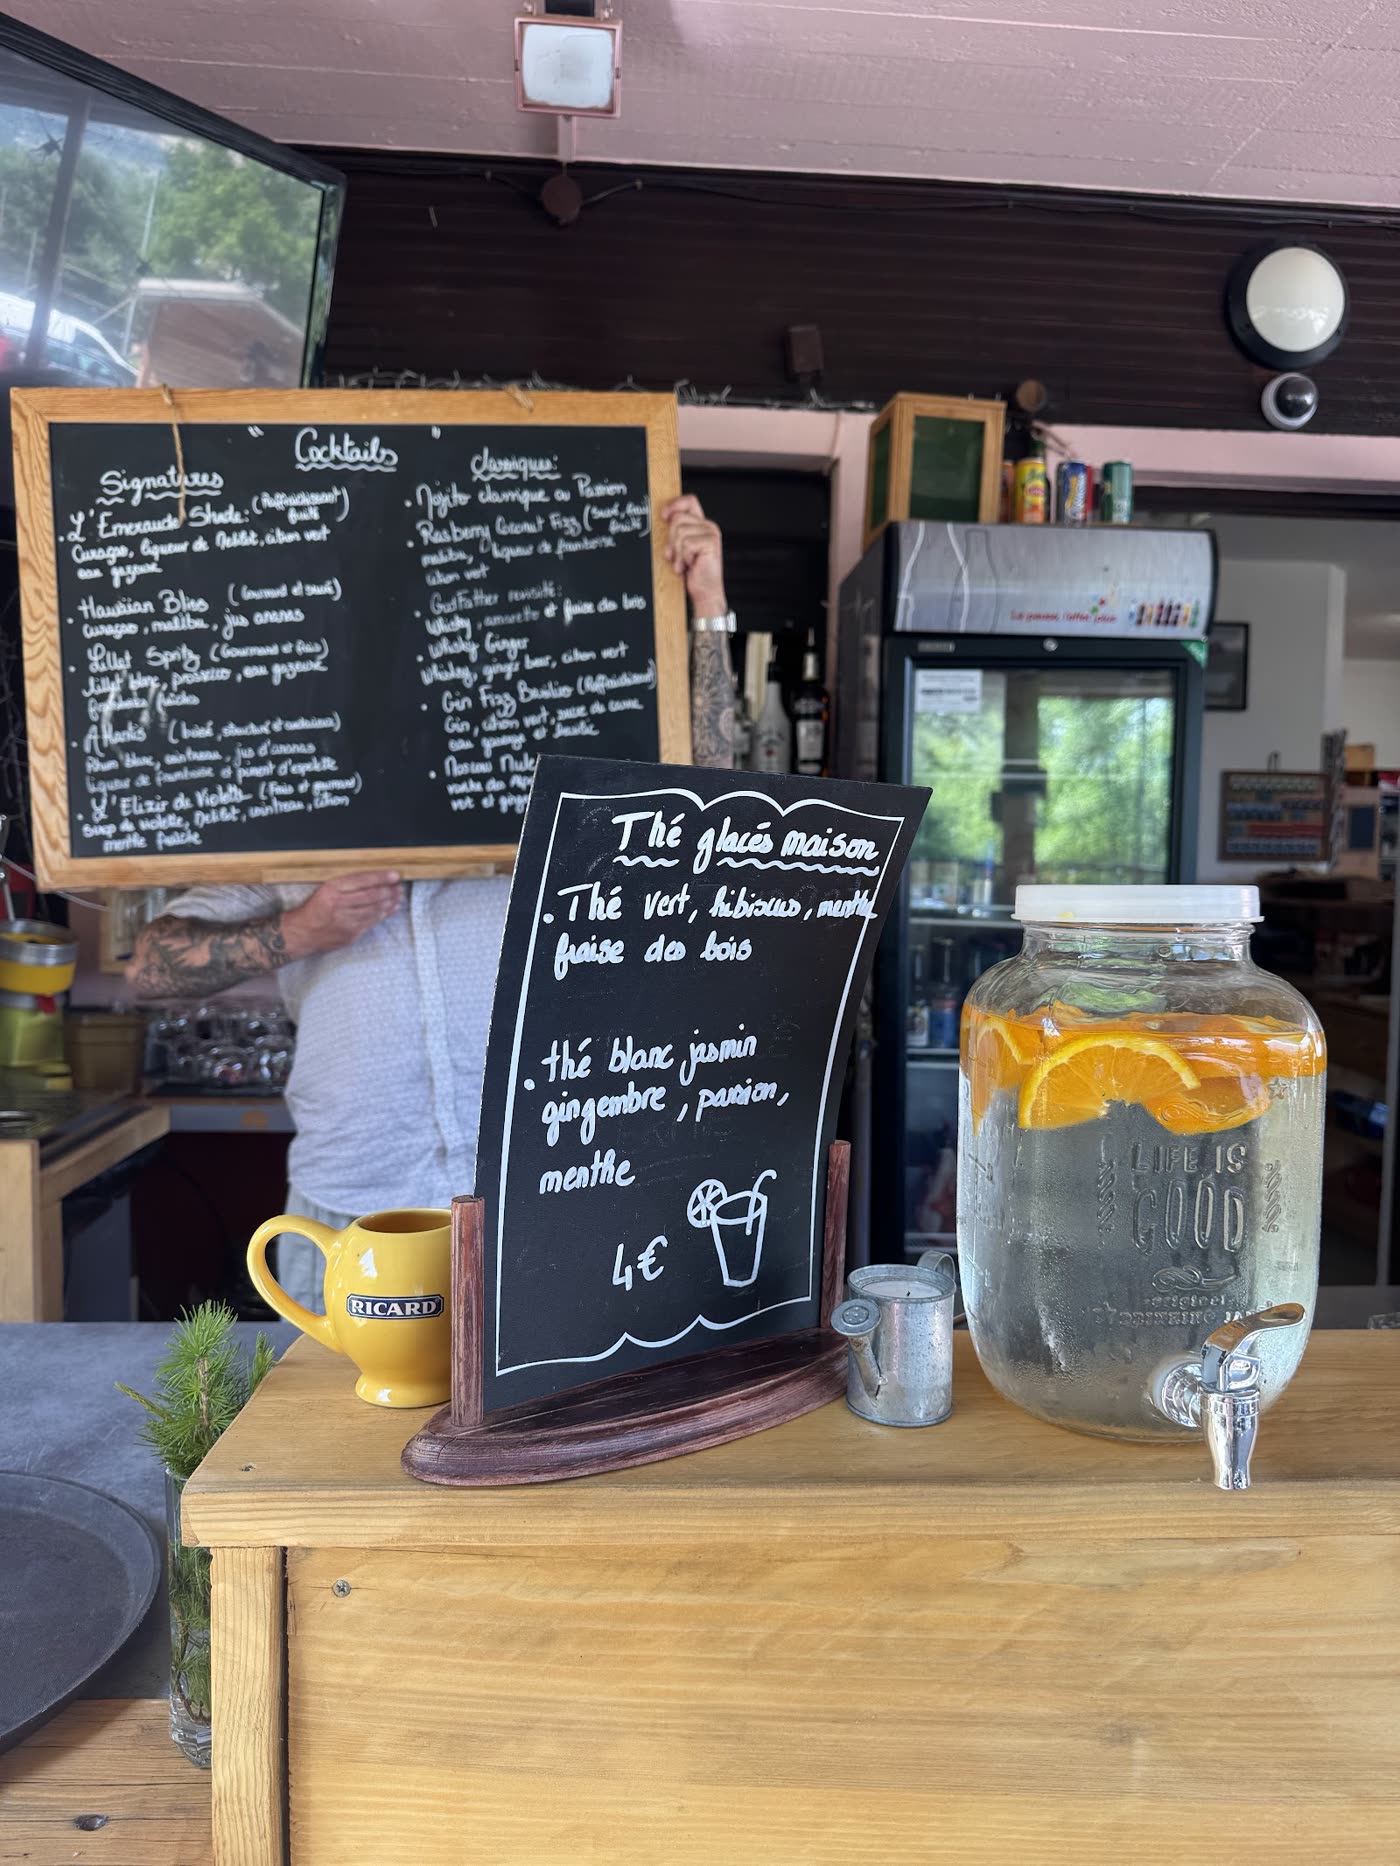 Cocktails
Signatures
• L'Emeraude Shade: (Raffraichissant
fruité)
Curaçao, liqueur de Melon, citron vert
eau gazeuse
• Hawaiian Bliss (Gourmand et sucré)
Curaçao, malibu, jus ananas
• Lillet Spritz (Gourmand et frais)
lillet blanc, prosecco, eau gazeuse
• Atlantis
Rhum blanc, cointreau, jus d'ananas
liqueur de framboise et piment d'espelette
• L'Elixir de Violette
Sirop de violette, cointreau, citron
menthe fraîche
classiques:
• Mojito classique ou Passion
• Rasberry Coconut Fizz
malibu, liqueur de framboise
citron vert
• GodFather revisité:
Whisky, amaretto et fraise des bois
• Whisky Ginger
Whiskey, ginger beer, citron vert
• Gin Fizz Basilic (Raffraichissant)
Gin, citron vert, sucre de canne
eau gazeuse et basilic
• Moscow Mule
Thé glacés maison
• Thé vert, hibiscus, menthe
fraise des bois
• thé blanc jasmin
gingembre, passion,
menthe
4€
RICARD
LIFE IS
GOOD